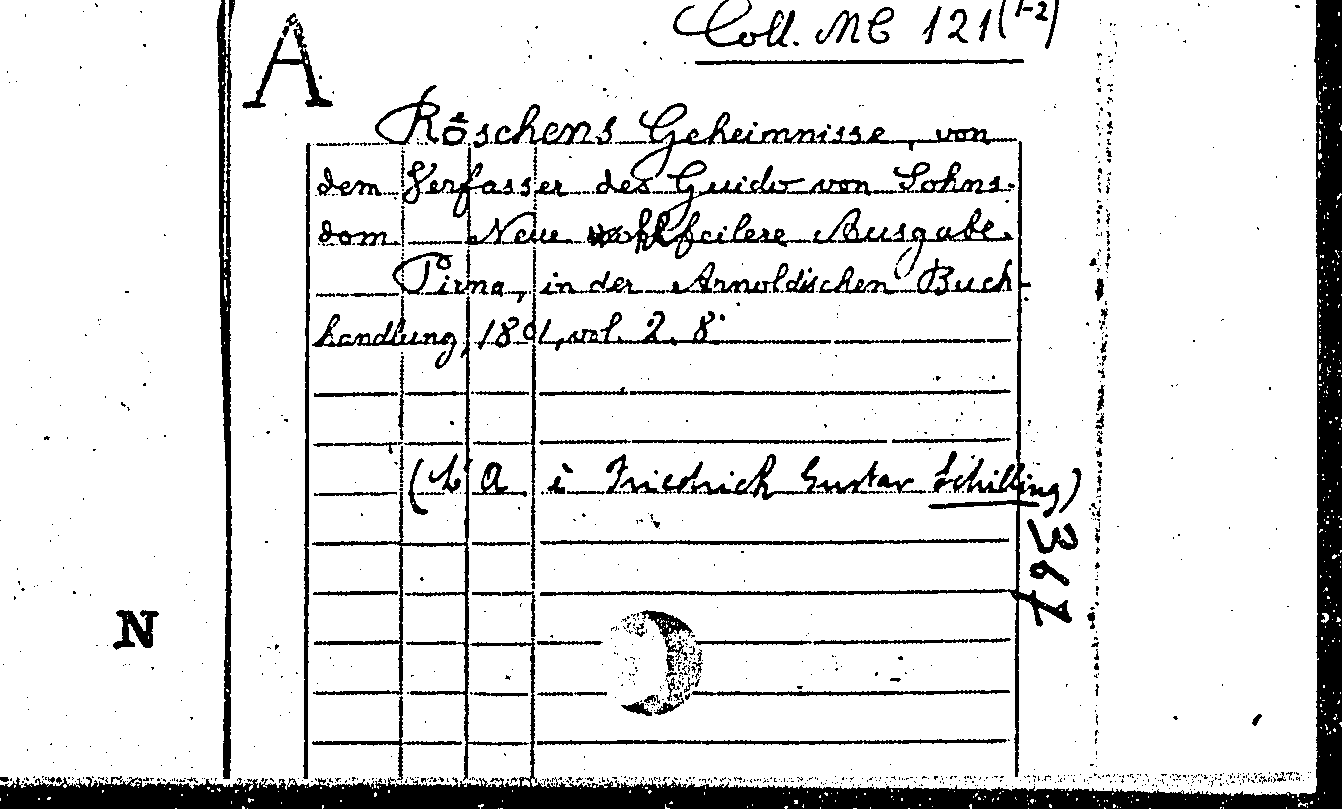 A
Coll. MC 121(1-2)
Röschens Geheimnisse, von
dem Verfasser des Guido von Sohns-
dom. Neue wohlfeilere Ausgabe.
Pirna, in der Arnoldischen Buch-
handlung, 1801, vol. 2. 8°
(L'A. è Friedrich Gustav Schilling)
367
N